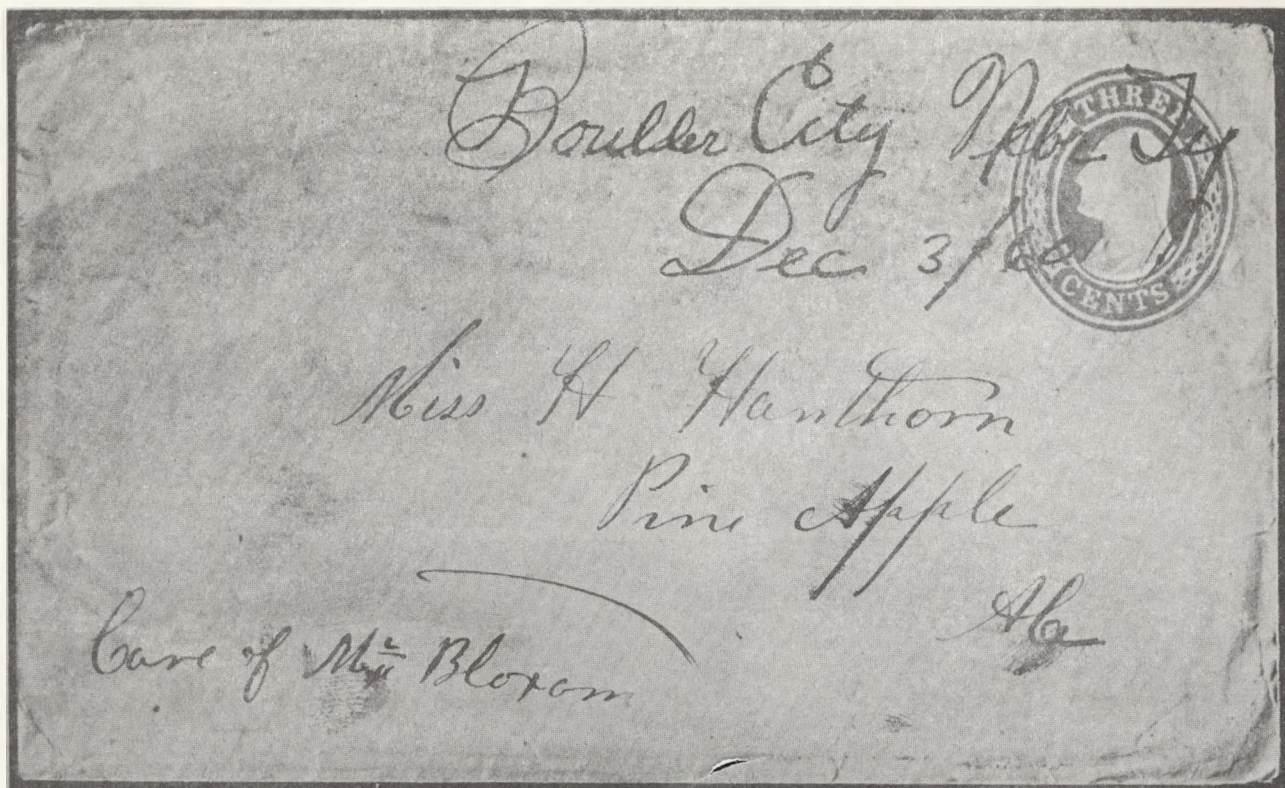 Boulder City Neb - Ty
Dec 3/60
THREE
CENTS
Miss H Hanthorn
Pine Apple
Ala
Care of Mr Bloxom